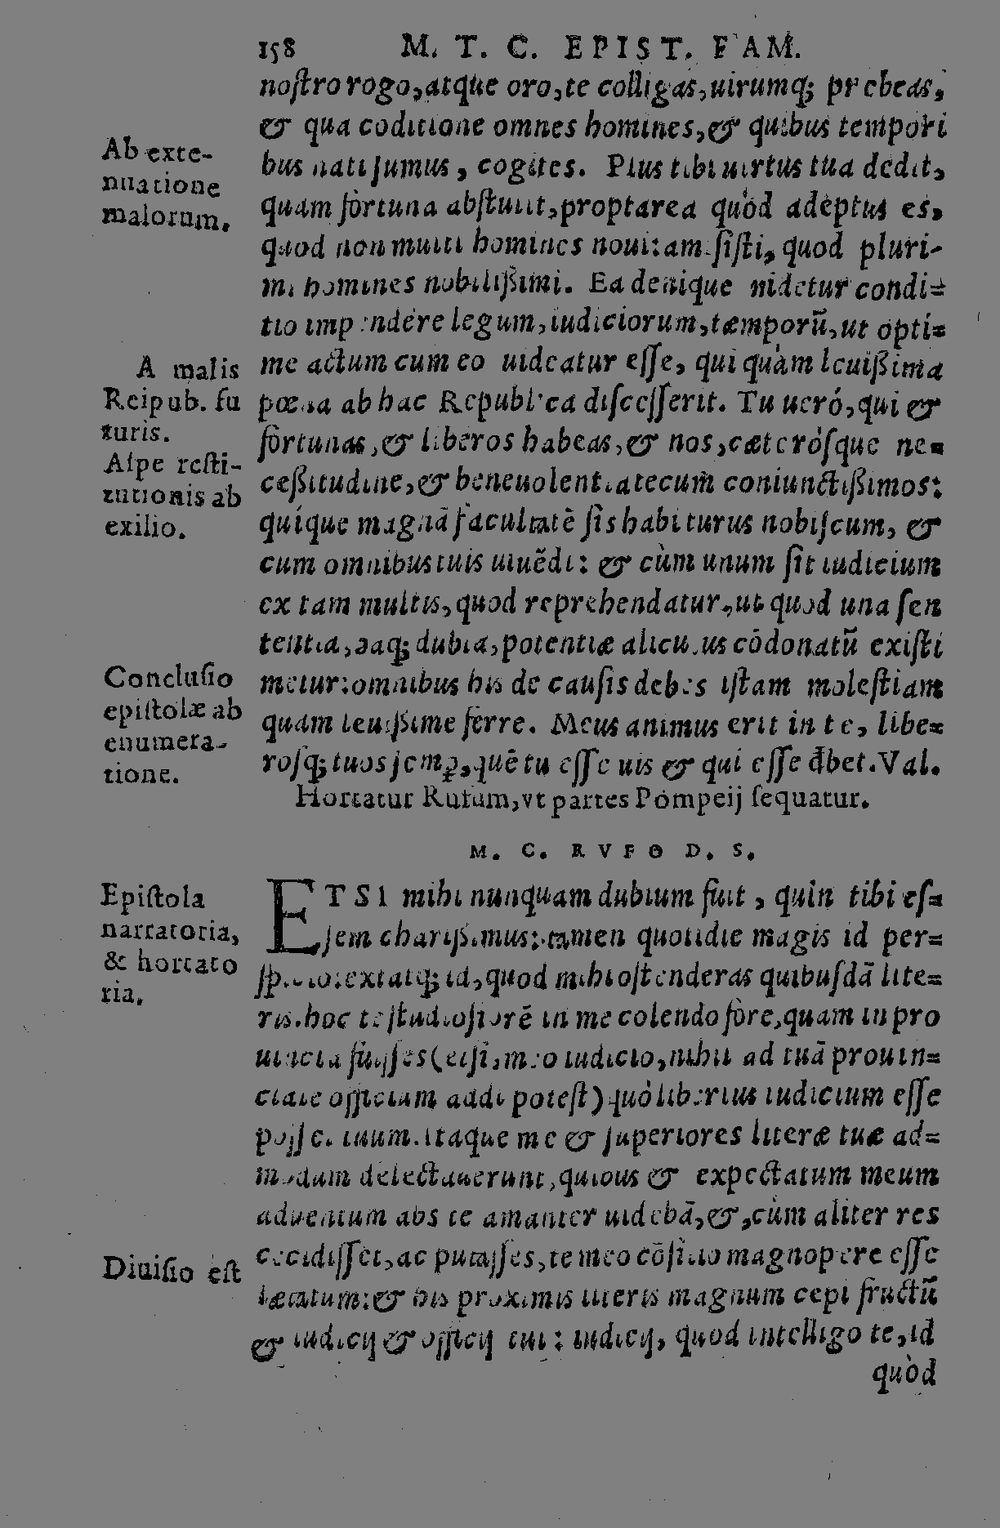 158 M. T. C. EPIST. FAM.
noſtro rogo, atque oro, te colligas, uirumq; prebeas,
& qua coditione omnes homines, & quibus tempori
Ab exte-
nuatione
malorum.
bus nati ſumus, cogites. Plus tibi uirtus tua dedit,
quam fortuna abſtulit, proptarea quòd adeptus es,
quod non multi homines noui: amiſiſti, quod pluri-
mi homines nobilißimi. Ea denique uidetur condi=
tio impendere legum, iudiciorum, tæmporū, ut opti=
A malis
Reipub. fu
turis.
Aſpe reſti-
tutionis ab
exilio.
me actum cum eo uideatur eſſe, qui quàm leuißima
pœna ab hac Republica diſceſſerit. Tu ueró, qui &
fortunas, & liberos habeas, & nos, cæteróſque ne=
ceßitudine, & beneuolentia tecum coniunctißimos:
quíque magnā facultatē ſis habiturus nobiſcum, &
cum omnibus tuis uiuēdi: & cùm unum ſit iudicium
ex tam multis, quod reprehendatur, ut quod una ſen
tentia, eaq; dubia, potentiæ alicuius cōdonatū exiſti
Concluſio
epiſtolæ ab
enumera-
tione.
metur: omnibus his de cauſis debes iſtam moleſtiam
quam leuißime ferre. Meus animus erit in te, libe=
roſq; tuos ſemp, quē tu eſſe uis & qui eſſe dbet. Val.
Hortatur Rufum, vt partes Pompeij ſequatur.
M. C. RVFO D. S.
Epiſtola
narratoria,
& hortato
ria.
ETSI mihi nunquam dubium fuit, quin tibi eſ=
ſem charißimus: tamen quotidie magis id per=
ſpicio: extatq; id, quod mihi oſtenderas quibuſdā lite=
ris. hoc te ſtudioſiorē in me colendo fore, quam in pro
uincia fuiſſes (etſi, meo iudicio, nihil ad tuā prouin=
ciale officium addi poteſt) quò liberius iudicium eſſe
poſſet tuum. itaque me & ſuperiores literæ tuæ ad=
modum delectauerunt, quibus & expectatum meum
aduentum abs te amanter uidebā, &, cùm aliter res
Diuiſio eſt
cecidiſſet, ac putaſſes, te meo cōſilio magnopere eſſe
lætatum: & his proximis literis magnum cepi fructū
& iudicij & officij tui: iudicij, quod intelligo te, id
quòd